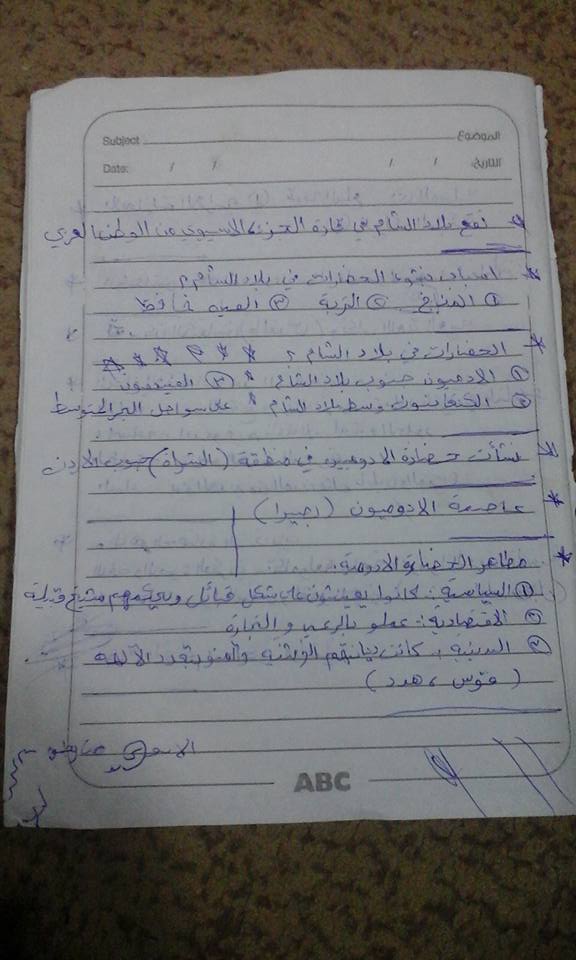 Subject الموضوع
Date: / / / / التاريخ:
تقع بلاد الشام في قارة الجزء الاسيوي من الوطن العربي
* اسباب نشوء الحضارات في بلاد الشام؟
① المناخ ② التربة ③
* الحضارات في بلاد الشام؟
① الادوميون جنوب بلاد الشام ③ الفينيقيون
② الكنعانيون وسط بلاد الشام على سواحل البحر المتوسط
نشأت حضارة الادوميون في منطقة (الشراة) جنوب الاردن
* عاصمة الادوميون (بصيرا)
* مظاهر الحضارة الادومية:
① السياسية: كانوا يعيشون على شكل قبائل ويحكمهم شيخ قبيلة
② الاقتصادية: عملو بالرعي والتجارة
③ الدينية: كانت ديانتهم الوثنية وآمنو بتعدد الآلهة
(قوس، هدد)
ABC